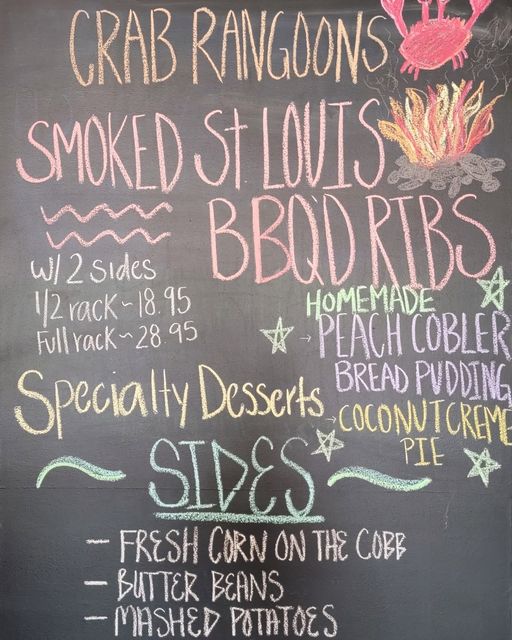 CRAB RANGOONS
SMOKED St. LOUIS
BBQ'D RIBS
w/ 2 sides
1/2 rack ~ 18.95
Full rack ~ 28.95
HOMEMADE
PEACH COBLER
BREAD PUDDING
Specialty Desserts
COCONUT CREME
PIE
SIDES
- FRESH CORN ON THE COBB
- BUTTER BEANS
- MASHED POTATOES